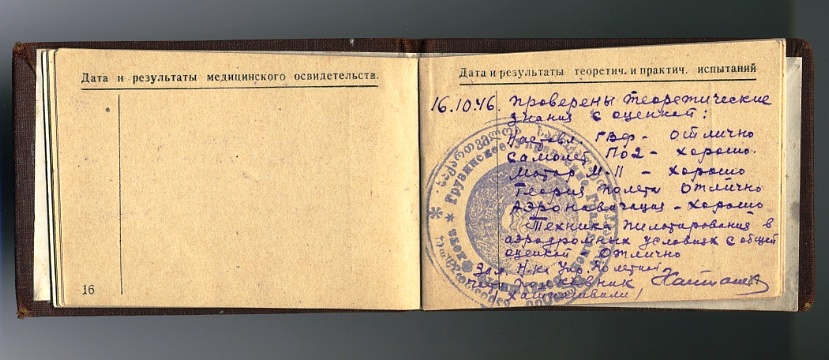 Дата и результаты медицинского освидетельств.
16
Дата и результаты теоретич. и практич. испытаний
16.10.46. Проверены теоретические
знания с оценкой:
Наставл. ГВФ - отлично
Самолет ПО2 - хорошо.
Мотор М-11 - хорошо
Теория полета отлично
Аэронавигация - хорошо
Техника пилотирования в
аэродромных условиях с общей
оценкой отлично
Зам. Н-ка Упр. по летной